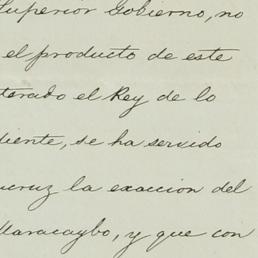 Superior Gobierno, no
el producto de este
terado el Rey de lo
diente, se ha servido
cruz la exaccion del
Maracaybo, y que con